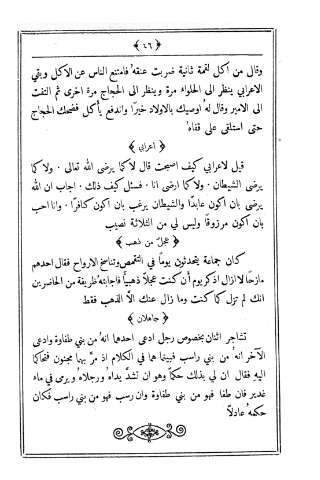 ﴿ ٤٦ ﴾
وقال من اكل لقمة ثانية ضربت عنقه فامتنع الناس عن الاكل وبقي
الاعرابي ينظر الى الحلواء مرة وينظر الى الحجاج مرة اخرى ثم التفت
الى الامير وقال له اوصيك بالاولاد خيرًا واندفع يأكل فضحك الحجاج
حتى استلقى على قفاه
﴿ اعرابي ﴾
قيل لاعرابي كيف اصبحت قال لا كما يرضى الله تعالى . ولا كما
يرضى الشيطان . ولا كما ارضى انا . فسئل كيف ذلك . اجاب ان الله
يرضى بان اكون عابدًا والشيطان يرغب بان اكون كافرًا . وانا احب
بان اكون مرزوقًا وليس لي من الثلاثة نصيب
﴿ عجل من ذهب ﴾
كان جماعة يتحدثون يومًا في التقمص وتناسخ الارواح فقال احدهم
مازحًا لاازال اذكر يوم أن كنت عجلًا ذهبيًا فاجابته ظريفة من الحاضرين
انك لم تزل كما كنت وما زال عنك الا الذهب فقط
﴿ جاهلان ﴾
تشاجر اثنان بخصوص رجل ادعى احدهما انه من بني طفاوة وادعى
الآخر انه من بني راسب فبينما هما في الكلام اذ مرّ بهما مجنون فتحاكما
اليه فقال ان لي بذلك حكمًا وهو ان تشدّ يداه ورجلاه ويرمى في ماء
غدير فان طفا فهو من بني طفاوة وان رسب فهو من بني راسب فكان
حكمه عادلًا